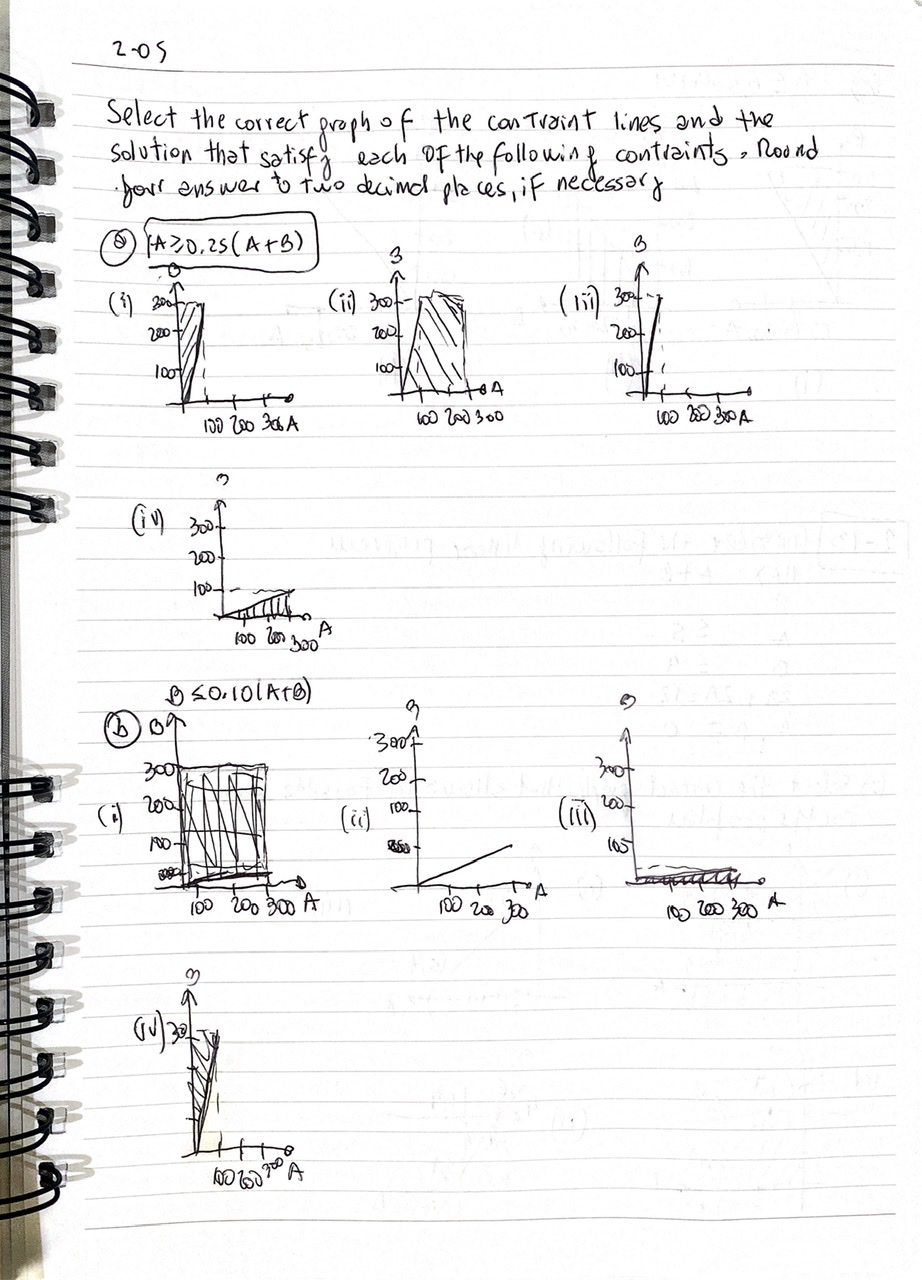 2-05
Select the correct graph of the contraint lines and the
solution that satisfy each of the following contraints. Round
your answer to two decimal places, if necessary
(a) A≥0.25(A+B)
(i) B 300 200 100 100 200 300 A
(ii) B 300 200 100 A 100 200 300
(iii) B 300 200 100 100 200 300 A
(iv) B 300 200 100 100 200 300 A
B ≤0.10(A+B)
(b)
(i) B 300 200 100 100 200 300 A
(ii) B 300 200 100 100 200 300 A
(iii) B 300 200 100 200 300 A
(iv) B 30 100 200 300 A